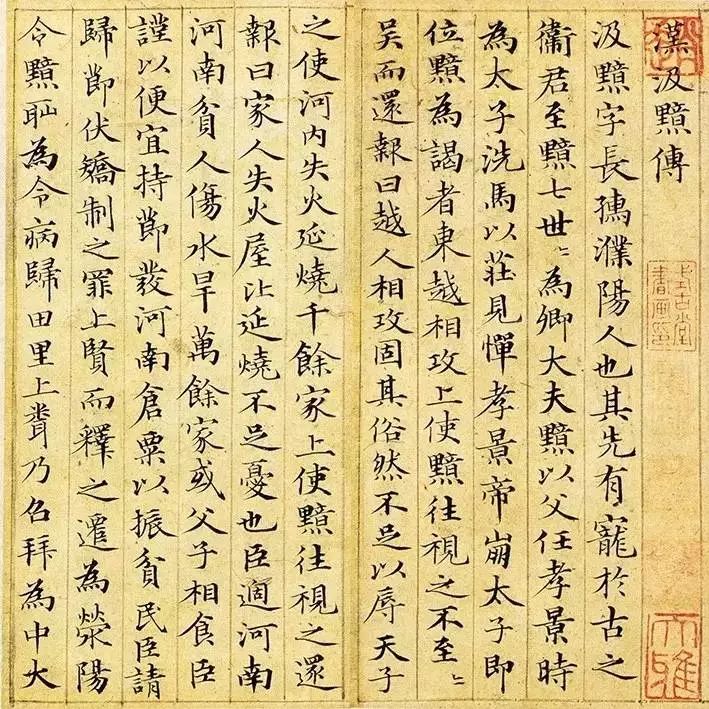 漢汲黯傳
汲黯字長孺濮陽人也其先有寵於古之
衞君至黯七世〻為卿大夫黯以父任孝景時
為太子洗馬以莊見憚孝景帝崩太子即
位黯為謁者東越相攻上使黯往視之不至〻
吴而還報曰越人相攻固其俗然不足以辱天子
之使河内失火延燒千餘家上使黯往視之還
報曰家人失火屋比延燒不足憂也臣過河南
河南貧人傷水旱萬餘家或父子相食臣
謹以便宜持節發河南倉粟以振貧民臣請
歸節伏矯制之罪上賢而釋之遷為滎陽
令黯恥為令病歸田里上聞乃召拜為中大
式古堂
書画印
大雅